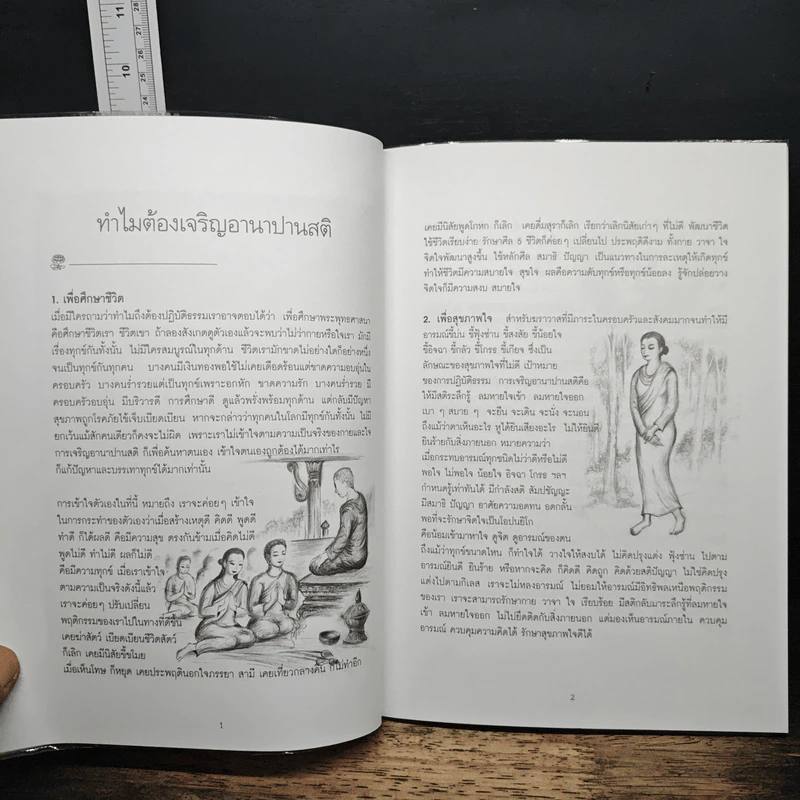 ทำไมต้องเจริญอานาปานสติ
1. เพื่อศึกษาชีวิต
เมื่อมีใครถามว่าทำไมถึงต้องปฏิบัติธรรมเราอาจตอบได้ว่า เพื่อศึกษาพระพุทธศาสนา
คือศึกษาชีวิตเรา ชีวิตเขา ถ้าลองสังเกตดูตัวเองแล้วจะพบว่าไม่ว่ากายหรือใจเรา มักมี
เรื่องทุกข์กันทั้งนั้น ไม่มีใครสมบูรณ์ในทุกด้าน ชีวิตเรามักขาดไม่อย่างใดก็อย่างหนึ่ง
จนเป็นทุกข์กันทุกคน บางคนมีเงินทองพอใช้ไม่เคยเดือดร้อนแต่ขาดความอบอุ่นใน
ครอบครัว บางคนร่ำรวยแต่เป็นทุกข์เพราะอกหัก ขาดความรัก บางคนร่ำรวย มี
ครอบครัวอบอุ่น มีบริวารดี การศึกษาดี ดูแล้วพรั่งพร้อมทุกด้าน แต่กลับมีปัญหา
สุขภาพถูกโรคภัยไข้เจ็บเบียดเบียน หากจะกล่าวว่าทุกคนในโลกมีทุกข์กันทั้งนั้น ไม่มี
ยกเว้นแม้สักคนเดียวก็คงจะไม่ผิด เพราะเราไม่เข้าใจตามความเป็นจริงของกายและใจ
การเจริญอานาปานสติ ก็เพื่อค้นหาตนเอง เข้าใจตนเองถูกต้องได้มากเท่าไร
ก็แก้ปัญหาและบรรเทาทุกข์ได้มากเท่านั้น
การเข้าใจตัวเองในที่นี้ หมายถึง เราจะค่อยๆ เข้าใจ
ในการกระทำของตัวเองว่าเมื่อสร้างเหตุดี คิดดี พูดดี
ทำดี ก็ได้ผลดี คือมีความสุข ตรงกันข้ามเมื่อคิดไม่ดี
พูดไม่ดี ทำไม่ดี ผลก็ไม่ดี
คือมีความทุกข์ เมื่อเราเข้าใจ
ตามความเป็นจริงดังนี้แล้ว
เราจะค่อยๆ ปรับเปลี่ยน
พฤติกรรมของเราไปในทางที่ดีขึ้น
เคยฆ่าสัตว์ เบียดเบียนชีวิตสัตว์
ก็เลิก เคยมีนิสัยขี้ขโมย
เมื่อเห็นโทษ ก็หยุด เคยประพฤตินอกใจภรรยา สามี เคยเที่ยวกลางคืน ก็ไม่ทำอีก
1
เคยมีนิสัยพูดโกหก ก็เลิก เคยดื่มสุราก็เลิก เรียกว่าเลิกนิสัยเก่าๆ ที่ไม่ดี พัฒนาชีวิต
ใช้ชีวิตเรียบง่าย รักษาศีล 5 ชีวิตก็ค่อยๆ เปลี่ยนไป ประพฤติดีงาม ทั้งกาย วาจา ใจ
จิตใจพัฒนาสูงขึ้น ใช้หลักศีล สมาธิ ปัญญา เป็นแนวทางในการละเหตุให้เกิดทุกข์
ทำให้ชีวิตมีความสบายใจ สุขใจ ผลคือความดับทุกข์หรือทุกข์น้อยลง รู้จักปล่อยวาง
จิตใจก็มีความสงบ สบายใจ
2. เพื่อสุขภาพใจ สำหรับฆราวาสที่มีภาระในครอบครัวและสังคมมากจนทำให้มี
อารมณ์ขี้บ่น ขี้ฟุ้งซ่าน ขี้สงสัย ขี้น้อยใจ
ขี้อิจฉา ขี้กลัว ขี้โกรธ ขี้เกียจ ซึ่งเป็น
ลักษณะของสุขภาพใจที่ไม่ดี เป้าหมาย
ของการปฏิบัติธรรม การเจริญอานาปานสติคือ
ให้มีสติระลึกรู้ ลมหายใจเข้า ลมหายใจออก
เบา ๆ สบาย ๆ จะยืน จะเดิน จะนั่ง จะนอน
ถึงแม้ว่าตาเห็นอะไร หูได้ยินเสียงอะไร ไม่ให้ยินดี
ยินร้ายกับสิ่งภายนอก หมายความว่า
เมื่อกระทบอารมณ์ทุกชนิดไม่ว่าดีหรือไม่ดี
พอใจ ไม่พอใจ น้อยใจ อิจฉา โกรธ ฯลฯ
กำหนดรู้เท่าทันได้ มีกำลังสติ สัมปชัญญะ
มีสมาธิ ปัญญา อาศัยความอดทน อดกลั้น
พอที่จะรักษาจิตใจเป็นโอปนยิโก
คือน้อมเข้ามาหาใจ ดูจิต ดูอารมณ์ของตน
ถึงแม้ว่าทุกข์ขนาดไหน ก็ทำใจได้ วางใจให้สงบได้ ไม่คิดปรุงแต่ง ฟุ้งซ่าน ไปตาม
อารมณ์ยินดี ยินร้าย หรือหากจะคิด ก็คิดดี คิดถูก คิดด้วยสติปัญญา ไม่ใช่คิดปรุง
แต่งไปตามกิเลส เราจะไม่หลงอารมณ์ ไม่ยอมให้อารมณ์มีอิทธิพลเหนือพฤติกรรม
ของเรา เราจะสามารถรักษากาย วาจา ใจ เรียบร้อย มีสติกลับมาระลึกรู้ที่ลมหายใจ
เข้า ลมหายใจออก ไม่ไปยึดติดกับสิ่งภายนอก แต่มองเห็นอารมณ์ภายใน ควบคุม
อารมณ์ ควบคุมความคิดได้ รักษาสุขภาพใจดีได้
2
11
10
28
27
26
25
24